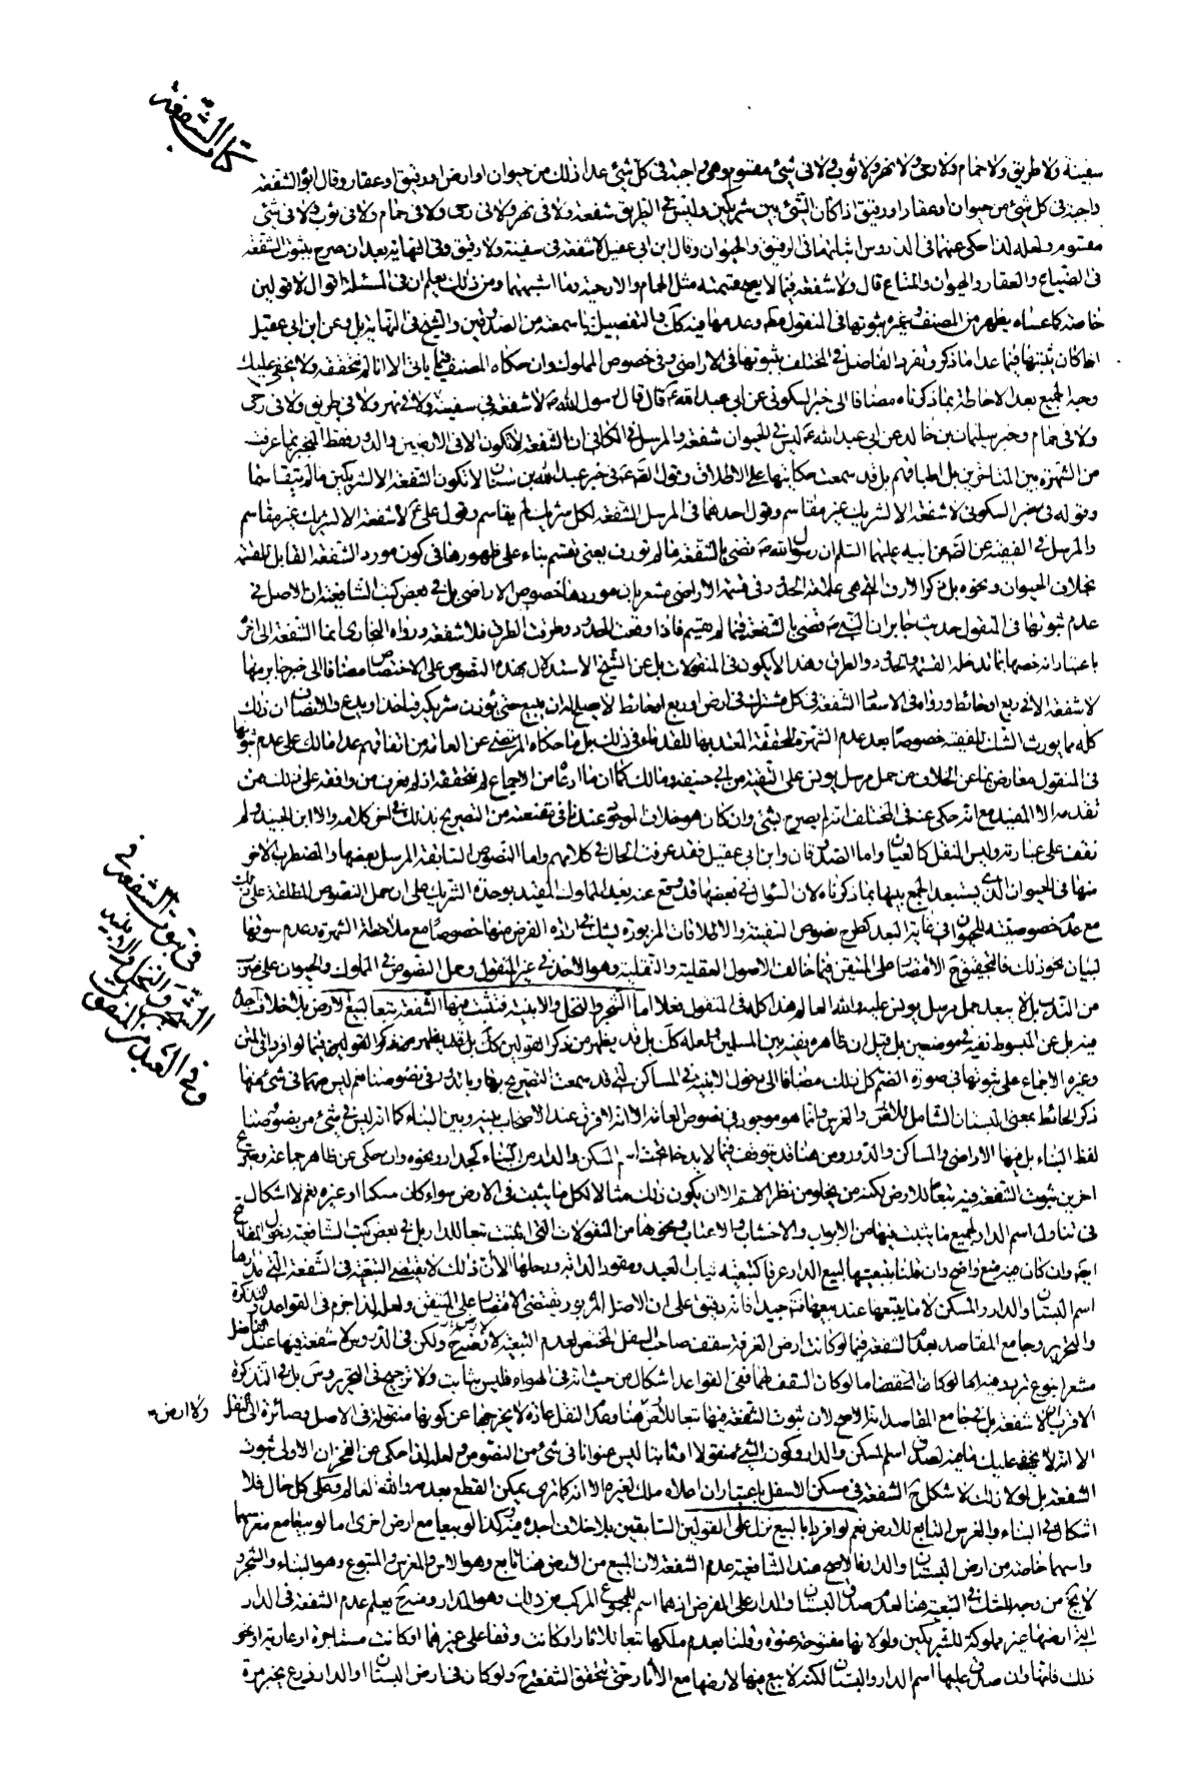 كتاب الشفعة
سفينة ولا طريق ولا حمام ولا رحى ولا نهر ولا ثوب ولا فى شئ مقسوم وهى واجبة فى كل شئ عدا ذلك من حيوان او ارض او رقيق او عقار وقال ابوه الشفعة
واجبة فى كل شئ من حيوان او عقار او رقيق اذا كان الشئ بين شريكين وليس فى الطريق شفعة ولا فى نهر ولا فى رحى ولا فى حمام ولا فى ثوب ولا فى شئ
مقسوم ولعله لذا حكى عنهما فى الدروس اثباتها فى الرقيق والحيوان وقال ابن ابى عقيل لا شفعة فى سفينة ولا رقيق وفى النهاية بعد ان صرح بثبوت الشفعة
فى الضياع والعقار والحيوان والمتاع قال ولا شفعة فيما لا يصح قسمته مثل الحمام والارحية وما اشبههما ومن ذلك يعلم ان فى المسئلة اقوال لا قولين
خاصة كما عساه يظهر من المصنف وغيره ثبوتها فى المنقول مط وعدمها فيه كك والتفصيل بما سمعته من الصدوقين والشيخ فى النهاية بل وعن ابن ابى عقيل
ايضا كان ثبتها فيما عدا ما ذكر وتفرد الفاضل فى المختلف بثبوتها فى الاراضى وفى خصوص المملوك وان حكاه المصنف فيما ياتى الا انا لم نتحققه ولا يخفى عليك
وجه الجميع بعد الاحاطة بما ذكرناه مضافا الى خبر السكونى عن ابى عبد الله ع قال قال رسول الله ص لا شفعة فى سفينة ولا فى نهر ولا فى طريق ولا فى رحى
ولا فى حمام وخبر سليمان بن خالد عن ابى عبد الله ع ليس فى الحيوان شفعة والمرسل فى الكافى ان الشفعة لا تكون الا فى الارضين والدور فقط المنجبر بما عرفت
من الشهرة بين المتاخرين بل اطباقهم بل قد سمعت حكايتها على الاطلاق وقول الصادق ع فى خبر عبد الله بن سنان لا تكون الشفعة الا لشريكين ما لم يتقاسما
وقوله فى خبر السكونى لا شفعة الا لشريك غير مقاسم وقول احدهما فى المرسل الشفعة لكل شريك لم يقاسم وقول على ع لا شفعة الا لشريك غير مقاسم
والمرسل فى الفقيه عن الصادق عن ابيه عليهما السلام ان رسول الله ص قضى بالشفعة ما لم تورف يعنى تقسم بناء على ظهورها فى كون مورد الشفعة القابل للقسمة
بخلاف الحيوان ونحوه بل ذكر الارف التى هى علامة الحدود فى قسمة الاراضى مشعر بان موردها خصوص الاراضى بل فى بعض كتب الشافعية ان الاصل فى
عدم ثبوتها فى المنقول حديث جابر ان النبى ص قضى بالشفعة فيما لم يقسم فاذا وقعت الحدود وطرفت الطرق فلا شفعة ورواه البخارى انما الشفعة الى اخره
باعتبار انه خصها بما تدخله القسمة والحدود والطرق وهذا لا يكون فى المنقولات بل عن الشيخ الاستدلال بهذه النصوص على الاختصاص مضافا الى خبر جابر منها
لا شفعة الا فى ربع او حائط ورواه فى الاسعاد الشفعة فى كل مشترك فى ارض او ربع او حائط لا يصلح له ان يبيع حتى يؤذن شريكه فياخذ او يدع والانصاف ان ذلك
كله مما يورث الشك للفقيه خصوصا بعد عدم الشهرة المحققة المعتد بها للقدماء فى ذلك بل ما حكاه المرتضى عن العامة من اتفاقهم عدا مالك على عدم ثبوتها
فى المنقول معارض بما عن الخلاف من حمل مرسل يونس على التقية من ابى حنيفة ومالك كما ان ما ادعاه من الاجماع لم نتحققه اذ لم نعرف من وافقه على ذلك ممن
تقدمه الا المفيد مع انه حكى عنه فى المختلف انه لم يصرح بشئ وان كان هو خلاف الموجود عندنا فى مقنعته من التصريح بذلك فى اخر كلامه والا ابن الجنيد ولم
نقف على عبارته وليس النقل كالعيان واما الصدوقان وابن ابى عقيل فقد عرفت الحال فى كلامهم واما النصوص السابقة المرسل بعضها والمضطرب الاخر
منها فى الحيوان الذى يستبعد الجمع بينها بما ذكرناه لان السؤال فى بعضها قد وقع عنه بقيد المملوك المقيد بوحدة الشريك على ان حمل النصوص المطلقة على ذلك
مع عدم خصوصيته للحيوان فى غاية البعد كطرح نصوص السفينة والاطلاقات المزبورة يشك فى ارادة الفرض منها خصوصا مع ملاحظة الشهرة وعدم سوقها
لبيان نحو ذلك فالتحقيق ح الاقتصار على المتيقن فيما خالف الاصول العقلية والنقلية وهو الاخذ فى غير المنقول وحمل النصوص فى المملوك والحيوان على ضرب
من الندب بل لا يبعد حمل مرسل يونس عليه والله العالم هذا كله فى المنقول فعلا اما الشجر والنخل والابنية فتثبت فيها الشفعة تبعا لبيع الارض بلا خلاف اجده
فيه بل عن المبسوط نفيه فى موضعين بل قيل ان ظاهره نفيه بين المسلمين ولعله كك بل قد يظهر من ذكر القولين كك بل قد يظهر من ذكر القولين فيما لو افردا فى المتن
وغيره الاجماع على ثبوتها فى صورة الضم كل ذلك مضافا الى دخول الابنية فى المساكن التى قد سمعت التصريح بها وبالدور فى نصوصنا نعم ليس فى شئ منها
ذكر الحائط بمعنى البستان الشامل للارض والغرس وانما هو موجود فى نصوص العامة الا انه لا فرق عند الاصحاب بينه وبين البناء كما انه ليس فى شئ من نصوصنا
لفظ البناء بل فيها الاراضى والمساكن والدور ومن هنا قد يتوقف فيما لا يدخل تحت اسم المسكن والدار من البناء كجدار ونحوه وان حكى عن ظاهر جماعة وصريح
اخرين ثبوت الشفعة فيه تبعا للارض لكنه لا يخلو من نظر اللهم الا ان يكون ذلك مثالا لكل ما يثبت فى الارض سواء كان مسكنا او غيره نعم لا اشكال
فى تناول اسم الدار لجميع ما يثبت فيها من الابواب والاخشاب والاعتاب ونحوها من المنقولات التى اثبتت تبعا للدار بل فى بعض كتب الشافعية دخول المفاتيح
ايضا وان كان فيه منع واضح وان قلنا بتبعيتها لبيع الدار عرفا كتبعية ثياب العبد ومقود الدابة ورحلها الا ان ذلك لا يقتضى التبعية فى الشفعة التى مدارها
اسم البستان والدار والمسكن لا ما يتبعها عند بيعها فتامل جيدا فانه دقيق على ان الاصل المزبور يقتضى الاقتصار على المتيقن ولعله لذا جزم فى القواعد والتذكرة
والتحرير وجامع المقاصد بعدم الشفعة فيما لو كانت ارض الغرفة سقف صاحب السفل المختص لعدم التبعية لارض ح ولكن فى الدروس لا شفعة فيها عند الفاضل
مشعرا بنوع تردد فيه اما لو كان السقف لهما ففى القواعد اشكال من حيث انه فى الهواء فليس بثابت ولا ترجيح فى التحرير وس بل فى التذكرة
الاقرب لا شفعة بل فى جامع المقاصد انه الاصح لان ثبوت الشفعة فيها تبعا للارض ولا ارض هنا وهذا النقل عادة لا يخرجها عن كونها منقولة فى الاصل وصائرة الى النقل
الا انه لا يخفى عليك ما فيه لصدق اسم المسكن والدار وكون الشئ منقولا او ثابتا ليس عنوانا فى شئ من النصوص ولعله لذا حكى عن الفخر ان الاولى ثبوت
الشفعة بل لولا ذلك لاشكل ح الشفعة فى مسكن الاسفل باعتبار ان اعلاه ملك لغيره الا انه كما ترى يمكن القطع بعدمه والله العالم وعلى كل حال فلا
اشكال فى البناء والغرس التابع للارض نعم لو افردا بالبيع نزل على القولين السابقين بلا خلاف اجده فيه وكذا لو بيعا مع ارض اخرى اما لو بيعا مع مغرسهما
واسهما خاصة من ارض البستان والدار فالاصح عند الشافعية عدم الشفعة لان المبيع من الارض هنا تابع وهو الاس والمغرس والمتبوع وهو البناء والشجر و
لا يخ من وجه للشك فى التبعية هنا لعدم صدق البستان والدار على الفرض انهما اسم للمجموع المركب من ذلك وهو المدار ومنه ح يعلم عدم الشفعة فى الدار
التى ارضها غير مملوكة للشريكين ولو لانها مفتوحة عنوة وقلنا بعدم ملكها تبعا للاثار او كانت وقفا على غيرهما او كانت مستاجرة او عارية او نحو
ذلك فانها وان صدق عليها اسم الدار والبستان لكنه لا بيع فيها لارضها مع الاثار حتى تتحقق الشفعة ح ولو كان فى ارض البستان او الدار زرع يجز مرة
فى ثبوت الشفعة فى
الشجر والنخل والابنية
وفى العبد من المنقولات
ولا ارض